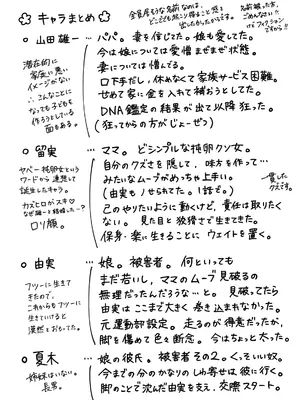 ✿ キャラまとめ ✿
全員居そうな名前なのは、
どこにでも起こり得ることだと
出したかったからです
名前被った方、
ごめんなさい!!
けどフィクション
ですから!!
○ 山田 雄一 … パパ。妻を信じてた。娘も愛してた。
今は娘については愛憎まぜまぜ状態。
妻については憎んでる。
口下手だし、休みなくて家族サービス困難。
せめて家に金を入れて補おうとしてた。
DNA鑑定の結果が出て以降 狂った。
(狂ってからの方がじょーぜつ)
潜在的に
家庭に悪い
イメージがない
∴ こんなことに
なっても子どもを
作ろうとしている
面もある。
○ 留実 … ママ。ドシンプルな托卵クソ女。
自分のクズさを隠して、味方を作って…
みたいなムーブがめっちゃ上手い。
(由実もノせられてた。1話で。)
己のやりたいように動くけど、責任は取りたく
ない。見た目と狡猾さで生きてきた。
保身・楽に生きることに ウェイトを置く。
ヤバー托卵女という
ワードから連想して
誕生したキャラ。
カズヒロがスキ♡
なぜ雄一と結婚した…?
ロリ顔。
一貫した
クズです。
○ 由実 … 娘。被害者。何といっても
まだ若いし、ママのムーブ見破るの
無理だったんだろうな…と。見破ってたら
由実はここまで大きく巻き込まれなかった。
元運動部設定。走るのが得意だったが、
脚を傷めて色々断念。今はちょっと太った。
フツーに生きて
きたので、
これからもフツーに
生きていけると
漠然とおもってた。
○ 夏木 … 娘の彼氏。被害者その2。くっそいい奴
今までの分のかなりのしわ寄せは彼に行く。
脚のことで沈んだ由実を支え、交際スタート。
姉妹はいない。
長男。